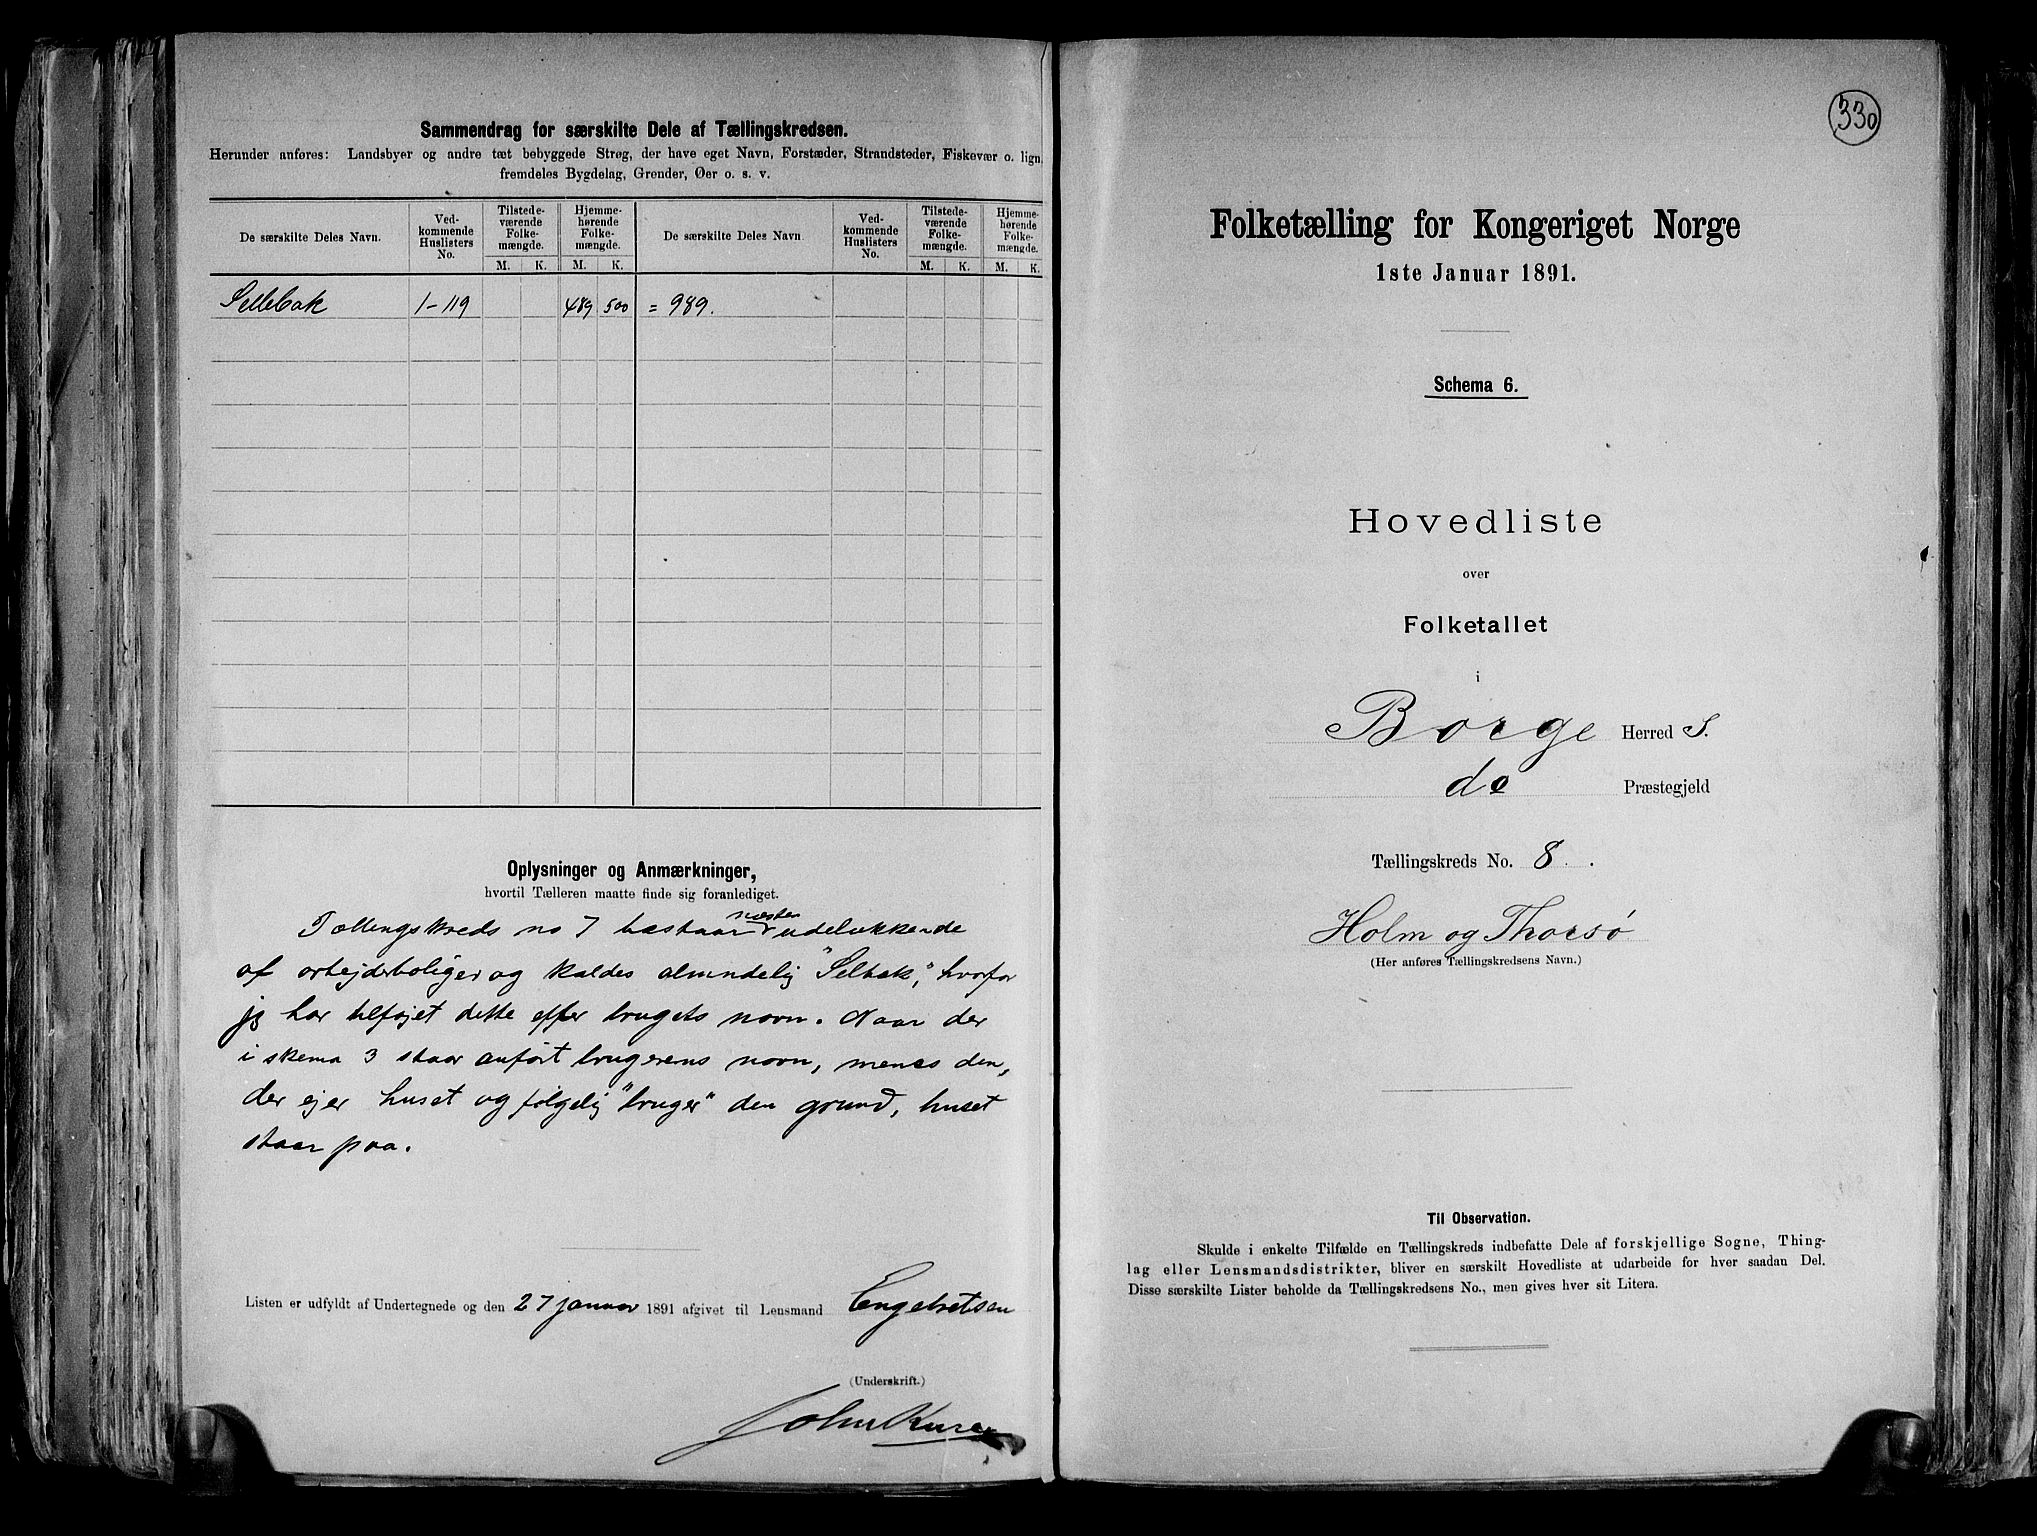 Sammendrag for særskilte Dele af Tællingskredsen.
Herunder anføres: Landsbyer og andre tæt bebyggede Strøg, der have eget Navn, Forstæder, Strandsteder, Fiskevær o. lign.
fremdeles Bygdelag, Grender, Øer o. s. v.
De særskilte Deles Navn. Ved-kommende Huslisters No. Tilstede-værende Folke-mængde. Hjemme-hørende Folke-mængde. De særskilte Deles Navn. Ved-kommende Huslisters No. Tilstede-værende Folke-mængde. Hjemme-hørende Folke-mængde.
M. K. M. K. M. K. M. K.
Sellebak 1-119 489 500 = 989.
Oplysninger og Anmærkninger,
hvortil Tælleren maatte finde sig foranlediget.
næsten
Tællingskreds no 7 bestaar udelukkende
af arbejderboliger og kaldes almindelig "Selbak", hvorfor
jeg har tilføjet dette efter brugets navn. Naar der
i skema 3 staar anført brugerens navn, menes den,
der ejer huset og følgelig "bruger" den grund, huset
staar paa.
Listen er udfyldt af Undertegnede og den 27 januar 1891 afgivet til Lensmand Engebretsen
(Underskrift.)
John
330
Folketælling for Kongeriget Norge
1ste Januar 1891.
Schema 6.
Hovedliste
over
Folketallet
i
Borge Herred S.
do Præstegjeld
Tællingskreds No. 8.
Holm og Thorsø
(Her anføres Tællingskredsens Navn.)
Til Observation.
Skulde i enkelte Tilfælde en Tællingskreds indbefatte Dele af forskjellige Sogne, Thing-
lag eller Lensmandsdistrikter, bliver en særskilt Hovedliste at udarbeide for hver saadan Del.
Disse særskilte Lister beholde da Tællingskredsens No., men gives hver sit Litera.